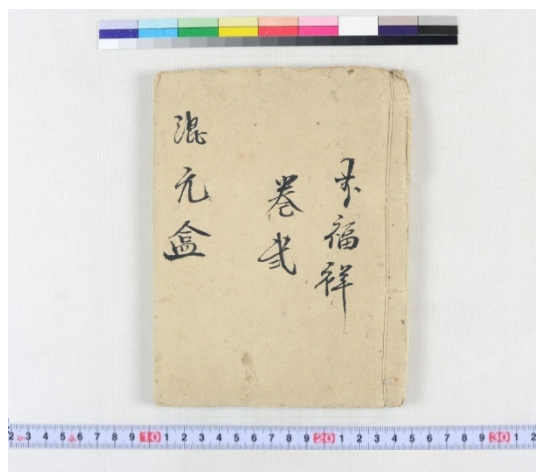 萬福祥
卷弍
混元盒
2 3 4 5 6 7 8 9 10 1 2 3 4 5 6 7 8 9 20 1 2 3 4 5 6 7 8 9 30 1 2